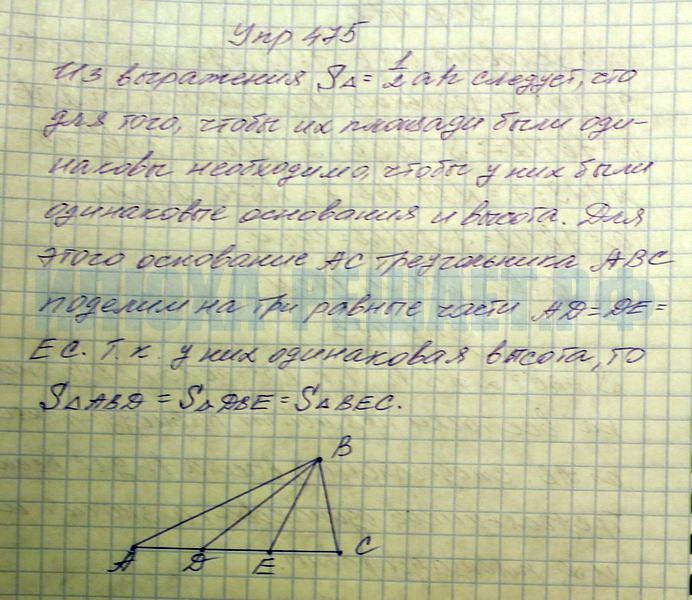 Упр 475
Из выражения S△ = 1/2 ah следует, что
для того, чтобы их площади были оди-
наковы необходимо, чтобы у них были
одинаковые основания и высота. Для
этого основание AC треугольника ABC
поделим на три равные части AD = DE =
EC. Т.к. у них одинаковая высота, то
S△ABD = S△DBE = S△BEC.
B
A D E C